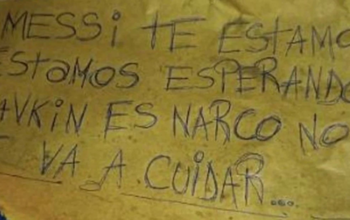 MESSI TE ESTAMO
ESTAMOS ESPERANDO
AVKIN ES NARCO NO
VA A CUIDAR...